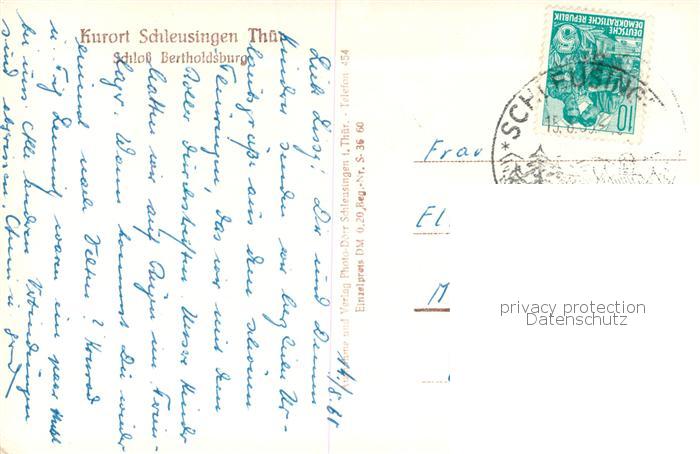 Kurort Schleusingen Thür
Schloß Bertholdsburg
14/8.60
Liebe Lissy! Dir und Deinen
Kindern senden wir herzliche Ur-
laubsgrüße aus dem schönen
Thüringen, das wir mit dem
Roller durchstreifen. Unsere Kinder
hatten wir auf Rügen im Ferien-
lager. Wann kommst Du wieder
einmal nach
u. waren ein paar
bei uns. Alle anderen
sind
Aufnahme und Verlag Photo-Dörr Schleusingen i. Thür. - Telefon 454
Einzelpreis DM 0,20 Reg.-Nr. S 36 60
DEUTSCHE
DEMOKRATISCHE REPUBLIK
10
SCHLEUSING
Frau
El
M
privacy protection
Datenschutz